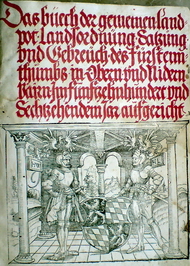 Das büech der gemeinen land
pot. Landsordnung. Satzung
vnd Gebreuch des Fürstenn
thumbs in Obern vnd Nidern
Bairn Im fünftzehnhundert vnd
Sechtzehendem Jar aufgericht